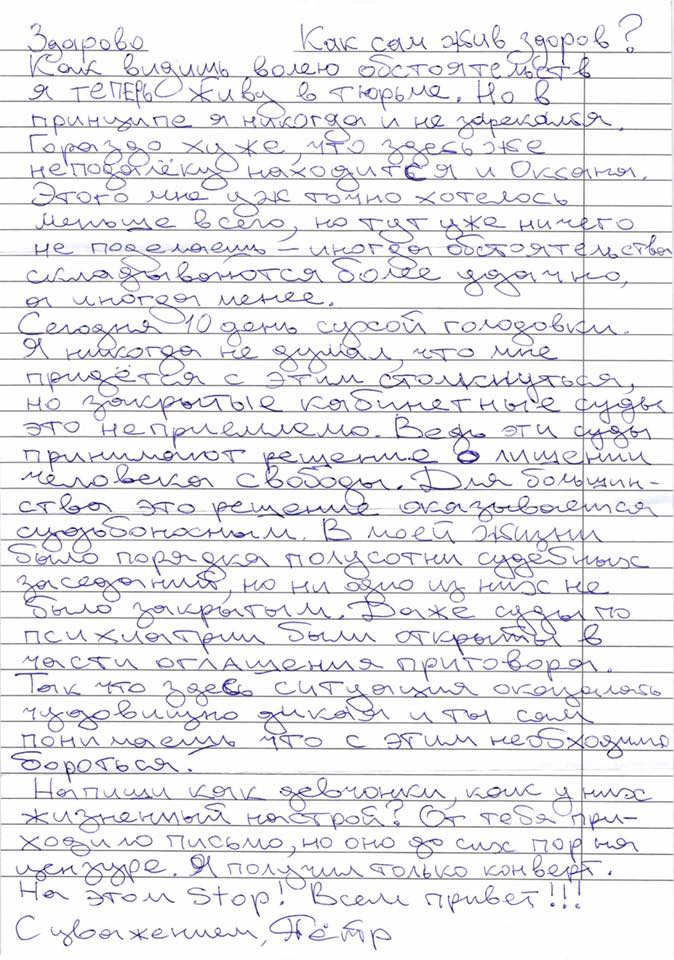 Здарово Как сам жив здоров?
Как видишь волею обстоятельств
я теперь живу в тюрьме. Но в
принципе я никогда и не зарекался.
Гораздо хуже, что здесь же
неподалёку находится и Оксана.
Этого мне уж точно хотелось
меньше всего, но тут уже ничего
не поделаешь – иногда обстоятельства
складываются более удачно,
а иногда менее.
Сегодня 10 день сухой голодовки.
Я никогда не думал, что мне
придётся с этим столкнуться,
но закрытые кабинетные суды
это неприемлемо. Ведь эти суды
принимают решение о лишении
человека свободы. Для большин-
ства это решение оказывается
судьбоносным. В моей жизни
было порядка полусотни судебных
заседаний, но ни одно из них не
было закрытым. Даже суды по
психиатрии были открыты в
части оглашения приговора.
Так что здесь ситуация оказалась
чудовищно дикая и ты сам
понимаешь что с этим необходимо
бороться.
Напиши как девчонки, как у них
жизненный настрой? От тебя при-
ходило письмо, но оно до сих пор на
цензуре. Я получил только конверт.
На этом Stop! Всем привет!!!
С уважением, Пётр